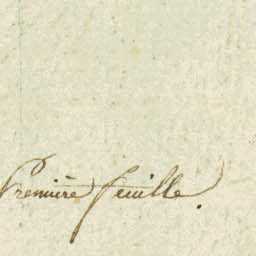 Première feuille.